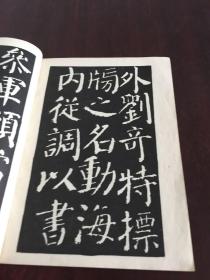 外劉奇特標
牓之名動海
内從調以書
叅軍頭